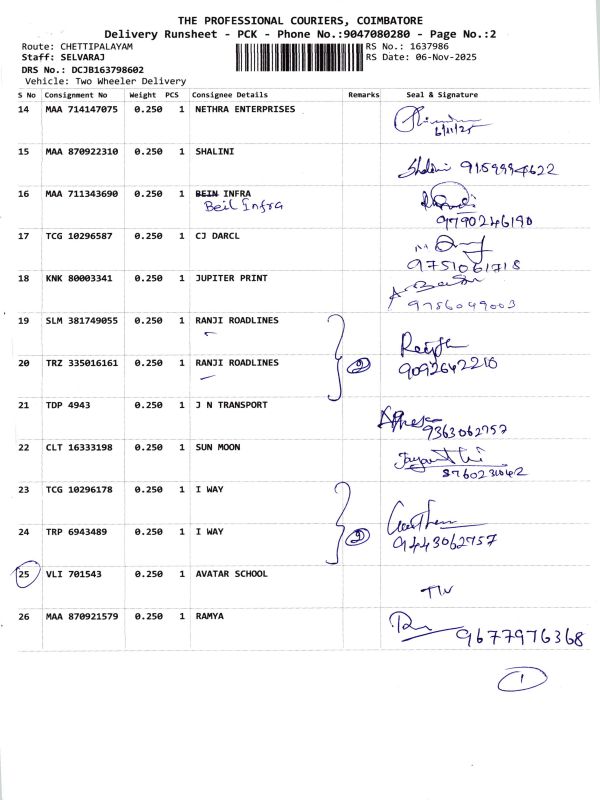 THE PROFESSIONAL COURIERS, COIMBATORE
Delivery Runsheet - PCK - Phone No.:9047080280 - Page No.:2
Route: CHETTIPALAYAM RS No.: 1637986
Staff: SELVARAJ RS Date: 06-Nov-2025
DRS No.: DCJB163798602
Vehicle: Two Wheeler Delivery
S No Consignment No Weight PCS Consignee Details Remarks Seal & Signature
14 MAA 714147075 0.250 1 NETHRA ENTERPRISES
6/11/25
15 MAA 870922310 0.250 1 SHALINI
Shalini 9159994622
16 MAA 711343690 0.250 1 BEIN INFRA
Beil Infra
9790246190
17 TCG 10296587 0.250 1 CJ DARCL
9751061718
18 KNK 80003341 0.250 1 JUPITER PRINT
9786049003
19 SLM 381749055 0.250 1 RANJI ROADLINES
20 TRZ 335016161 0.250 1 RANJI ROADLINES
2
9092642210
21 TDP 4943 0.250 1 J N TRANSPORT
9363062757
22 CLT 16333198 0.250 1 SUN MOON
8760231042
23 TCG 10296178 0.250 1 I WAY
24 TRP 6943489 0.250 1 I WAY
2
9443062757
25 VLI 701543 0.250 1 AVATAR SCHOOL
26 MAA 870921579 0.250 1 RAMYA
9677976368
1